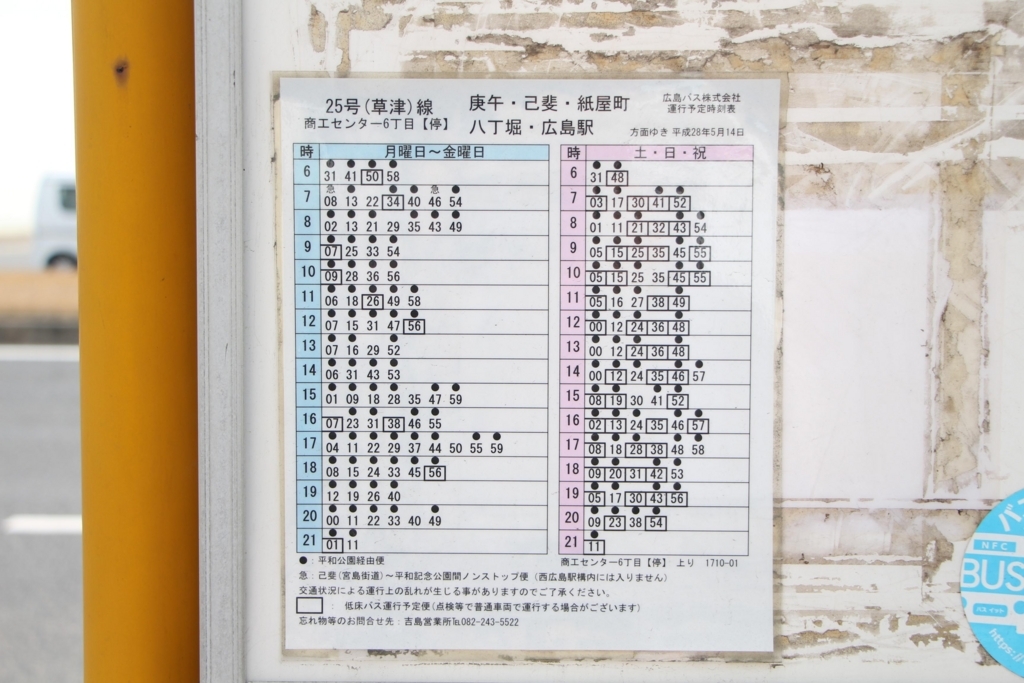 25号(草津)線
商工センター6丁目【停】
庚午・己斐・紙屋町
八丁堀・広島駅
広島バス株式会社
運行予定時刻表
方面ゆき 平成28年5月14日
時 月曜日～金曜日
6 31 41 50 58
急 急
7 08 13 22 34 40 46 54
8 02 13 21 29 35 43 49
9 07 25 33 54
10 09 28 36 56
11 06 18 26 49 58
12 07 15 31 47 56
13 07 16 29 52
14 06 31 43 53
15 01 09 18 28 35 47 59
16 07 23 31 38 46 55
17 04 11 22 29 37 44 50 55 59
18 08 15 24 33 45 56
19 12 19 26 40
20 00 11 22 33 40 49
21 01 11
時 土・日・祝
6 31 48
7 03 17 30 41 52
8 01 11 21 32 43 54
9 05 15 25 35 45 55
10 05 15 25 35 45 55
11 05 16 27 38 49
12 00 12 24 36 48
13 00 12 24 36 48
14 00 12 24 35 46 57
15 08 19 30 41 52
16 02 13 24 35 46 57
17 08 18 28 38 48 58
18 09 20 31 42 53
19 05 17 30 43 56
20 09 23 38 54
21 11
●：平和公園経由便
商工センター6丁目【停】 上り 1710-01
急：己斐(宮島街道)～平和記念公園間ノンストップ便（西広島駅構内には入りません）
交通状況による運行上の乱れが生じる事がありますのでご了承ください。
： 低床バス運行予定便(点検等で普通車両で運行する場合がございます)
忘れ物等のお問合せ先：吉島営業所℡082-243-5522
バ
NFC
BUS
https:/